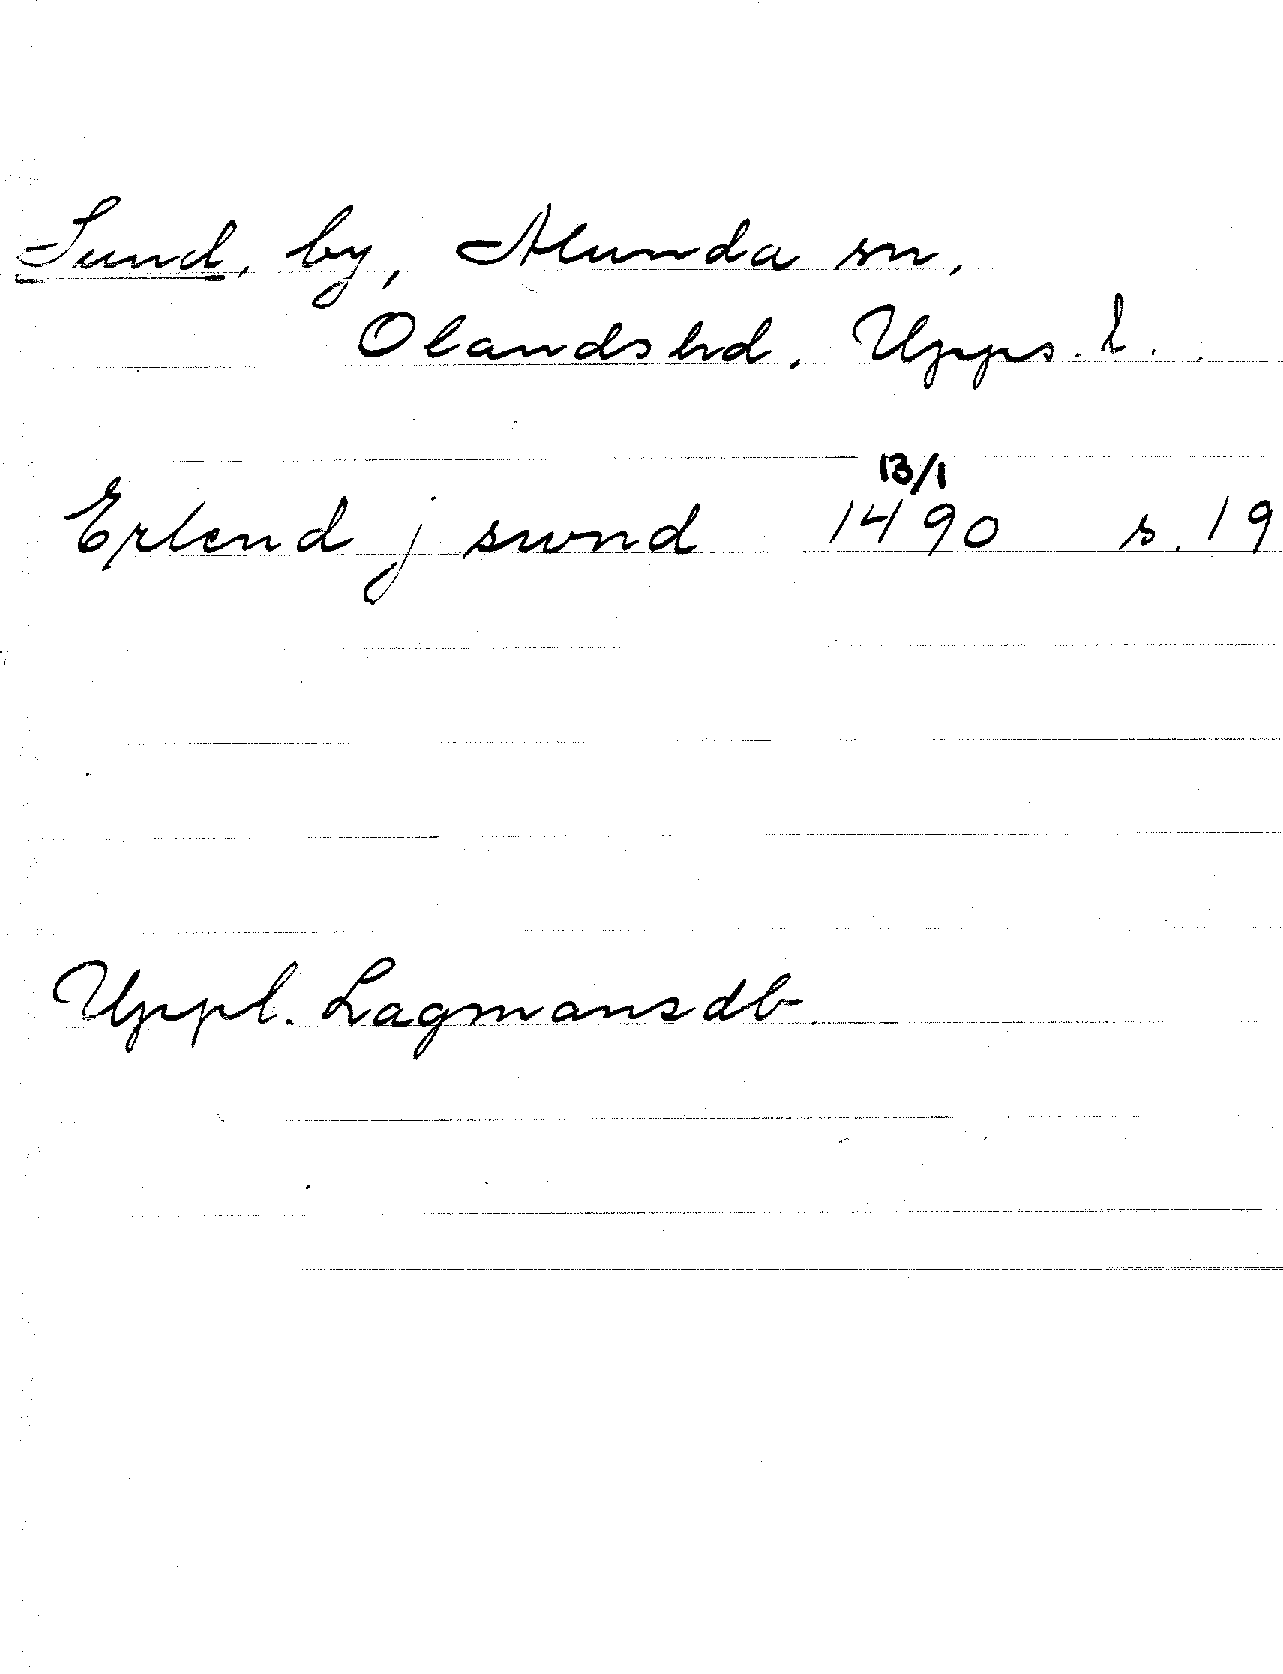 Sund, by, Alunda sn,
Olands hd. Upps. l.
13/1
Erlend j swnd 1490 s. 19
Uppl. Lagmansdb.